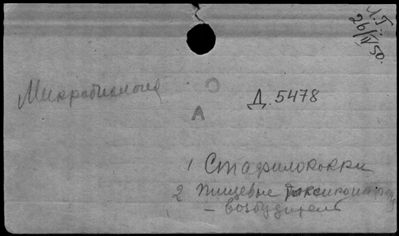 Л.Г.
26/V 50.
Микробиология
Д. 5478
А
1 Стафилококки
2 пищевые токсикоинф
– возбудитель